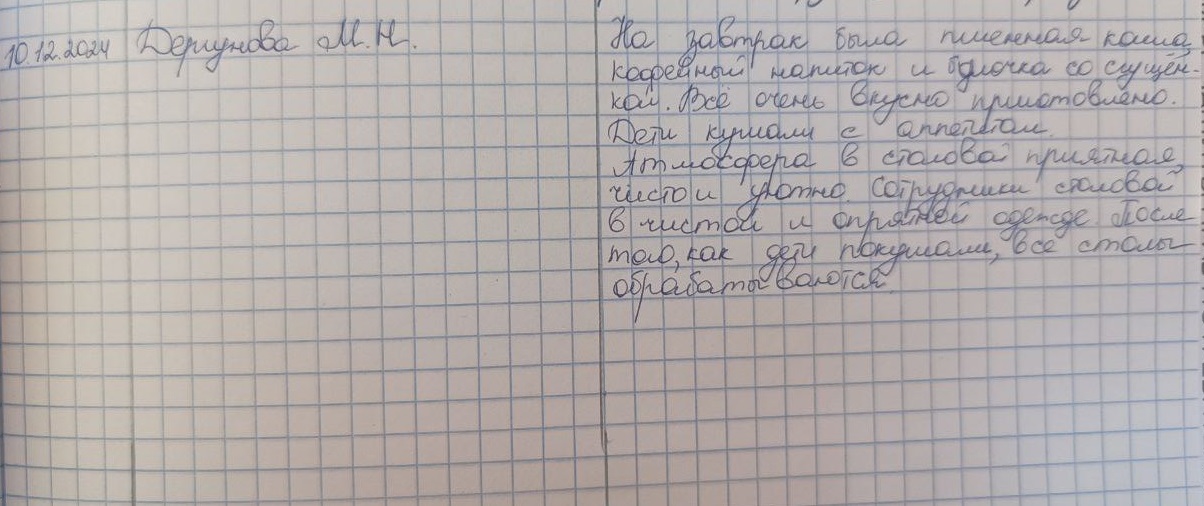 10.12.2024 Дергунова М.Н.
На завтрак была пшенная каша,
кофейный напиток и булочка со сгущён-
кой. Всё очень вкусно приготовлено.
Дети кушали с аппетитом.
Атмосфера в столовой приятная,
чисто и уютно. Сотрудники столовой
в чистой и опрятной одежде. После
того, как дети покушали, все столы
обрабатываются.